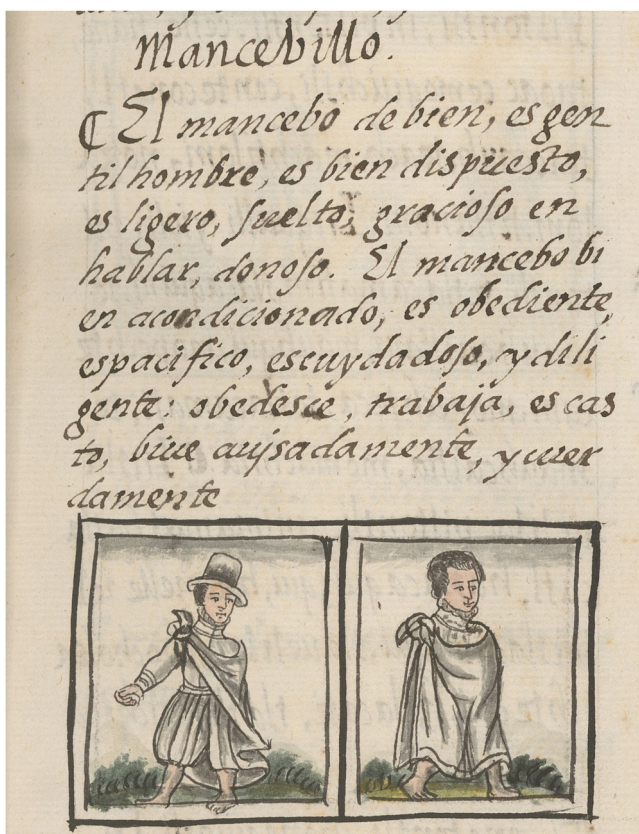 Mancebillo.
¶ El mancebo de bien, es gen
til hombre, es bien dispuesto,
es ligero, suelto, gracioso en
hablar, donoso. El mancebo bi
en acondicionado, es obediente,
espacifico, escuydadoso, y dili
gente: obedesce, trabaja, es cas
to, biue auisadamente, y cuer
damente